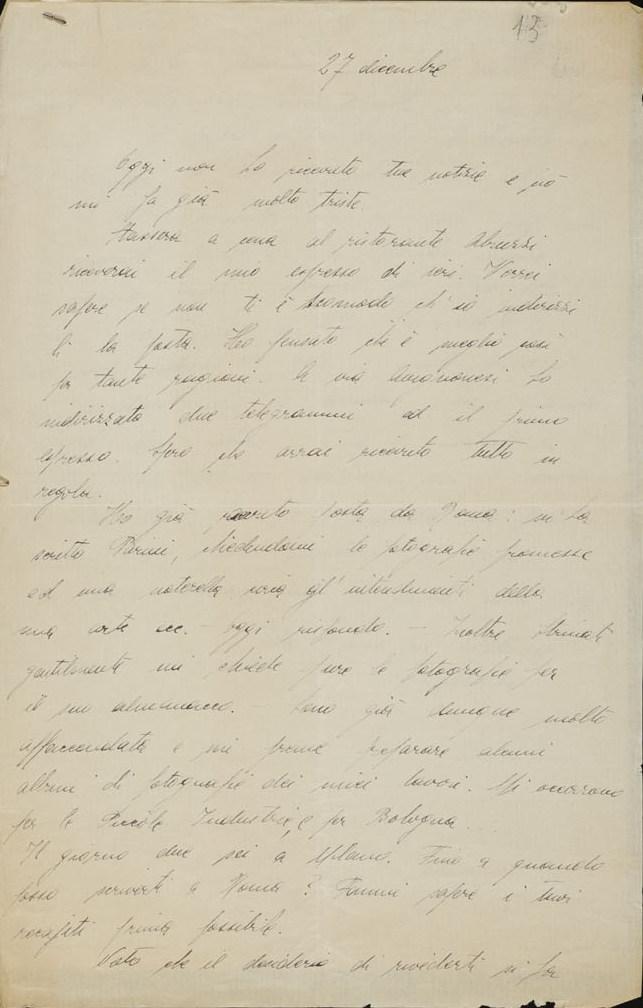 13
27 dicembre
Oggi non ho ricevuto tue notizie e ciò
mi fa già molto triste.
Stassera a cena al ristorante Abruzzi
riceverai il mio espresso di ieri. Vorrei
sapere se non ti è scomodo ch'io indirizzi
lì la posta. Ho pensato che è meglio così
per tante ragioni. A via Avignonesi ho
indirizzato due telegrammi ed il primo
espresso. Spero che avrai ricevuto tutto in
regola.
Ho già ricevuto posta da Roma: mi ha
scritto Parisi, chiedendomi le fotografie promesse
ed una noterella circa gl'intendimenti della
mia arte ecc. - oggi rispondo. - Inoltre
gentilmente mi chiede pure le fotografie per
il suo almanacco. - Sono già dunque molto
affaccendata e mi preme preparare alcuni
albums di fotografie dei miei lavori. Mi occorrono
per le Piccole Industrie, e per Bologna.
Il giorno due sei a Milano. Fino a quando
posso scriverti a Roma? Fammi sapere i tuoi
recapiti prima possibile.
che il desiderio di rivederti si fa